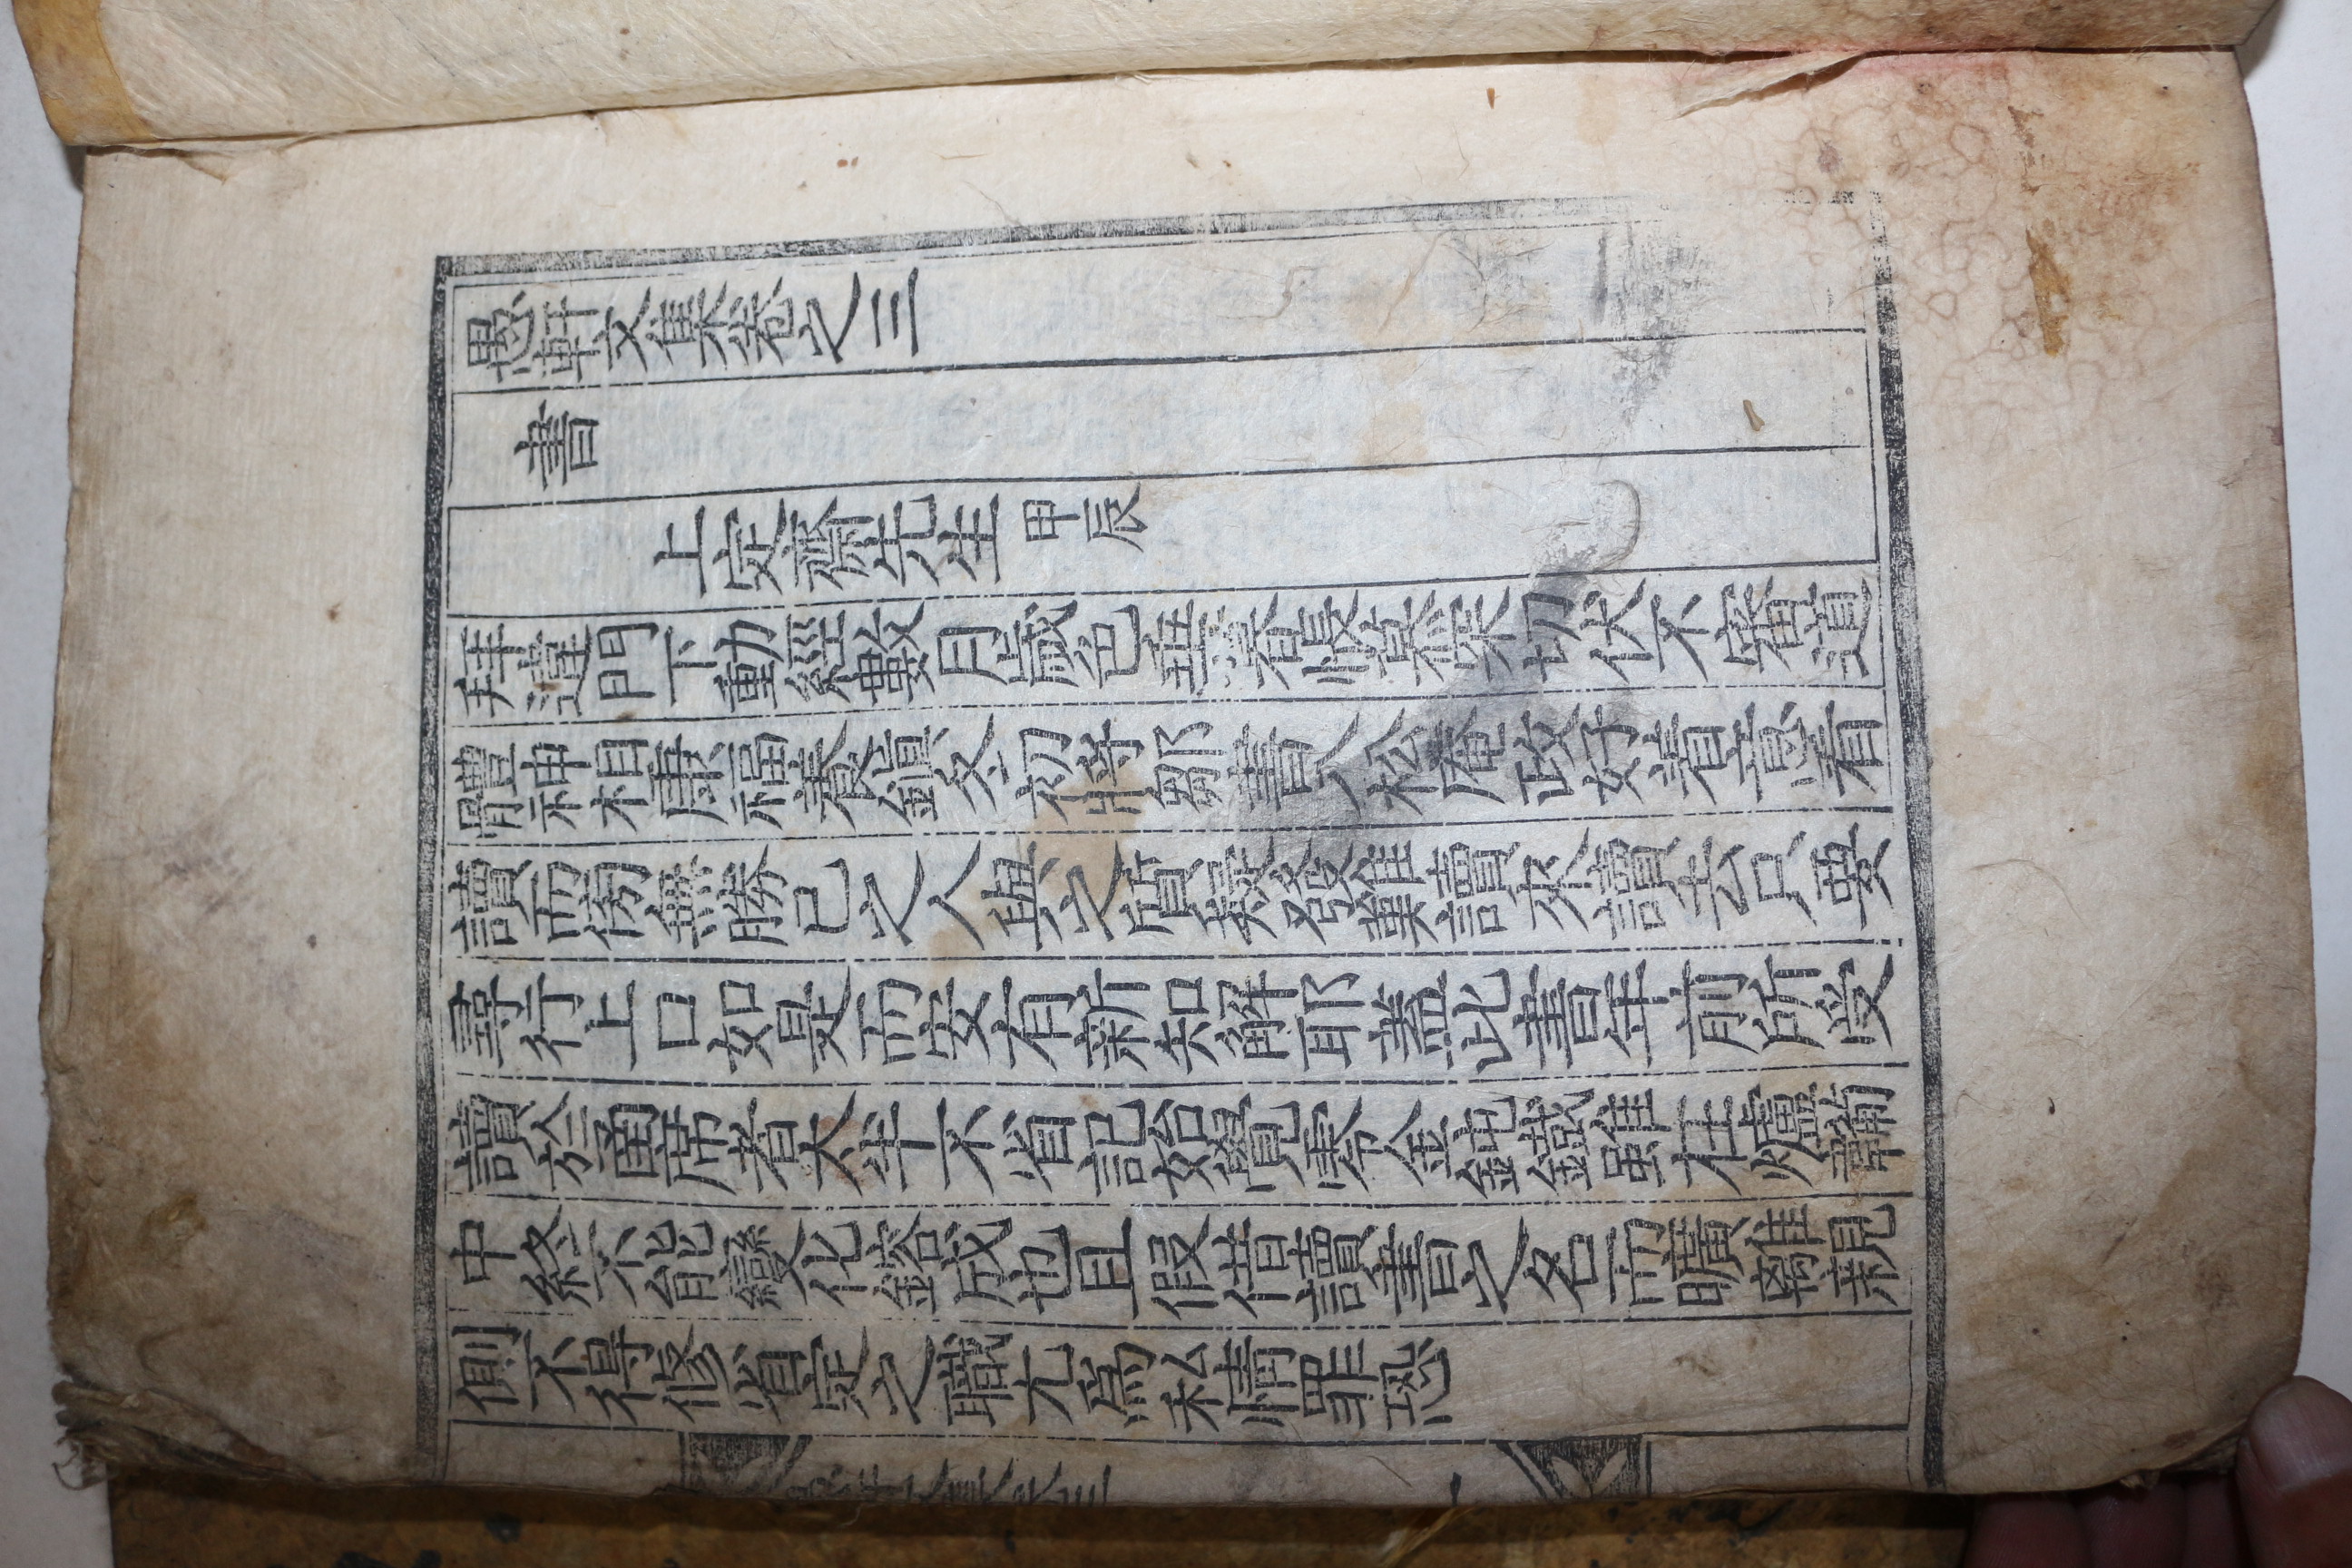 愚軒文集卷之三
書
上定齋先生 甲辰
拜違門下動經數月歲色垂暮悵慕宲切伏不審道
體神相康福養鎭冬初將鄒書入松庵政好着意看
讀而傍無勝已之人與之質疑發難讀來讀去只要
尋行上口如是而安有新知解耶蓋此書年前所受
讀於函席者太半不省記始覺零金鈍鐵雖在爐鞴
中終不能變化鎔成也且假借讀書之名而曠離親
側不得修省定之職尤爲私情罪恐
文集卷三
一